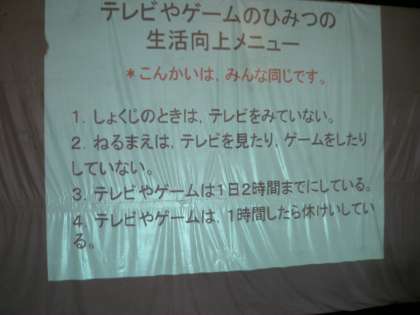 テレビやゲームのひみつの
生活向上メニュー
＊こんかいは，みんな同じです。
1．しょくじのときは，テレビをみていない。
2．ねるまえは，テレビを見たり，ゲームをしたり
していない。
3．テレビやゲームは1日2時間までにしている。
4．テレビやゲームは，1時間したら休けいしてい
る。